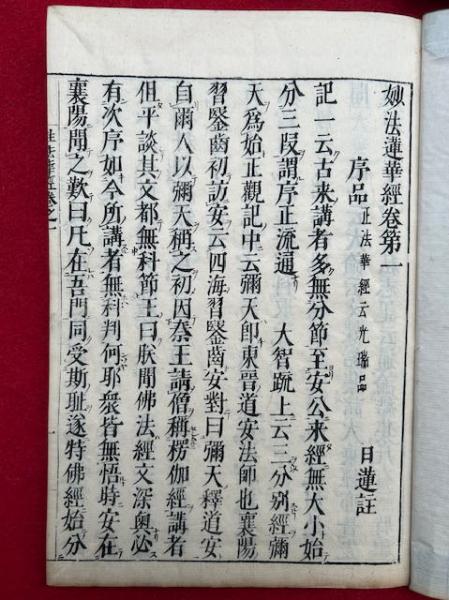 妙法蓮華經卷第一
序品 正法華經云光瑞品 日蓮註
記一云古来講者多無分節至安公来經無大小始
分三段謂序正流通 大智䟽上云三分別經彌
天爲始正觀記中云彌天卽東晉道安法師也襄陽
習鑿齒初訪安云四海習鑿齒安對曰彌天釋道安
自爾人以彌天稱之初因秦王請僧稱楞伽經講者
但平談其文都無科節王曰朕聞佛法經文深奥必
有次序如今所講者無科判何耶衆皆無悟時安在
襄陽聞之歎曰凡在吾門同受斯耻遂特佛經始分